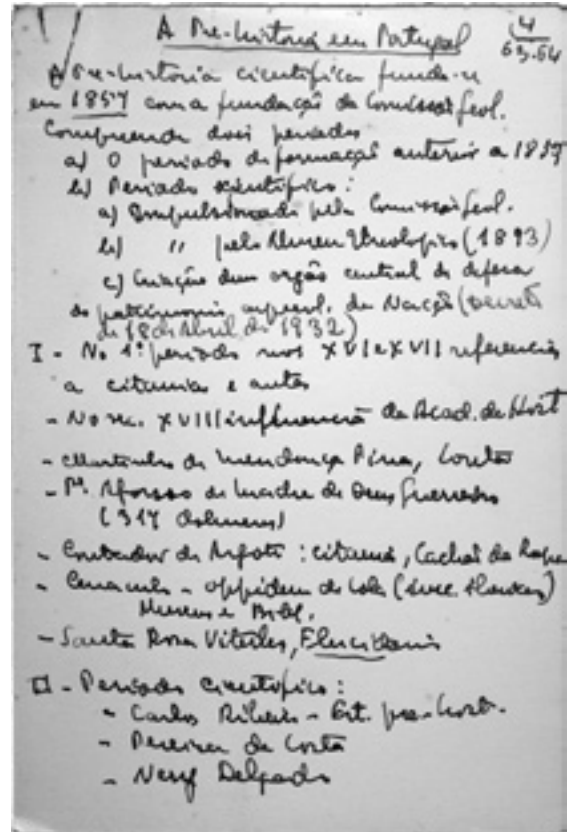 A Pre-historia em Portugal
4
63-64
A Pre-historia cientifica funda-se
em 1857 com a fundação da Comissão Geol.
Compreende dois periodos
a) O periodo de formação anterior a 1857
b) Periodo scientifico:
a) Impulsionado pela Comissão Geol.
b) " pelo Museu Etnologico (1893)
c) Criação dum orgão central de defesa
do patrimonio arqueol. da Nação (Decreto
de 18 de Abril de 1932)
I - No 1º periodo nos XVI e XVII referencias
a citanias e antas
- No sec. XVIII influencia da Acad. de Hist
- Martinho de Mendonça Pina,
- Pe. Afonso da Madre de Deus Guerreiro
(317 dolmens)
- Contador de Argote: citanias, Cachão da Rapa
- Cenaculo - oppidum de Cola
Museu e Bibl.
- Santa Rosa Viterbo, Elucidario
II - Periodo cientifico:
- Carlos Ribeiro - Est. pre-hist.
- Pereira da Costa
- Nery Delgado